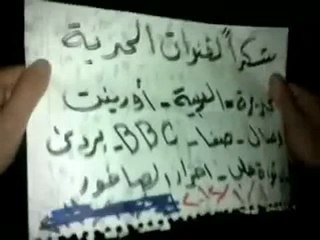 شكراً لقنوات الحرية
جزيرة - العربية - أورينت
وصال - صفا - BBC - بردى
احرار الصاخور